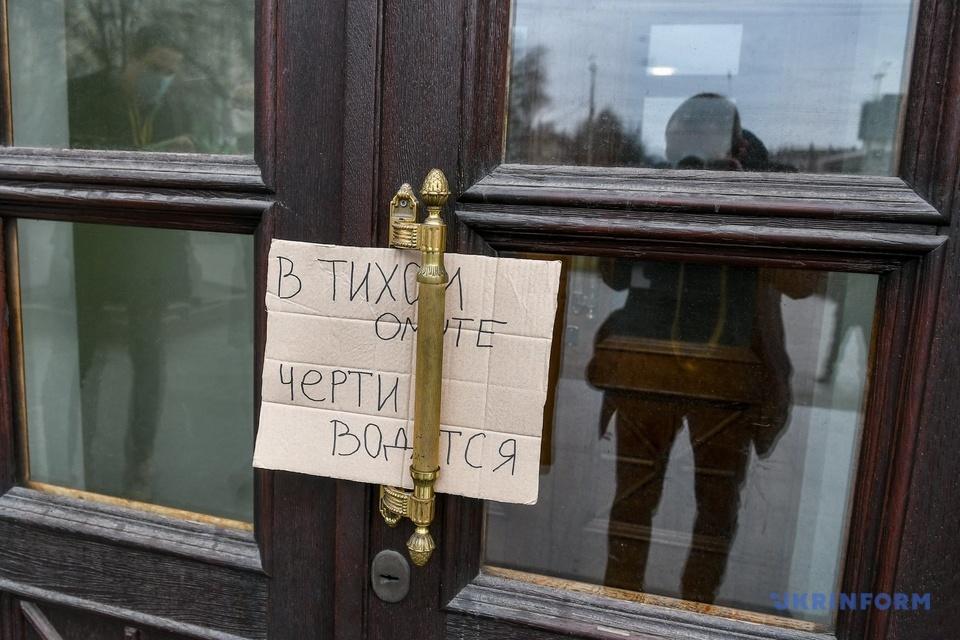 В ТИХОМ
ОМУТЕ
ЧЕРТИ
ВОДЯТСЯ
UKRINFORM